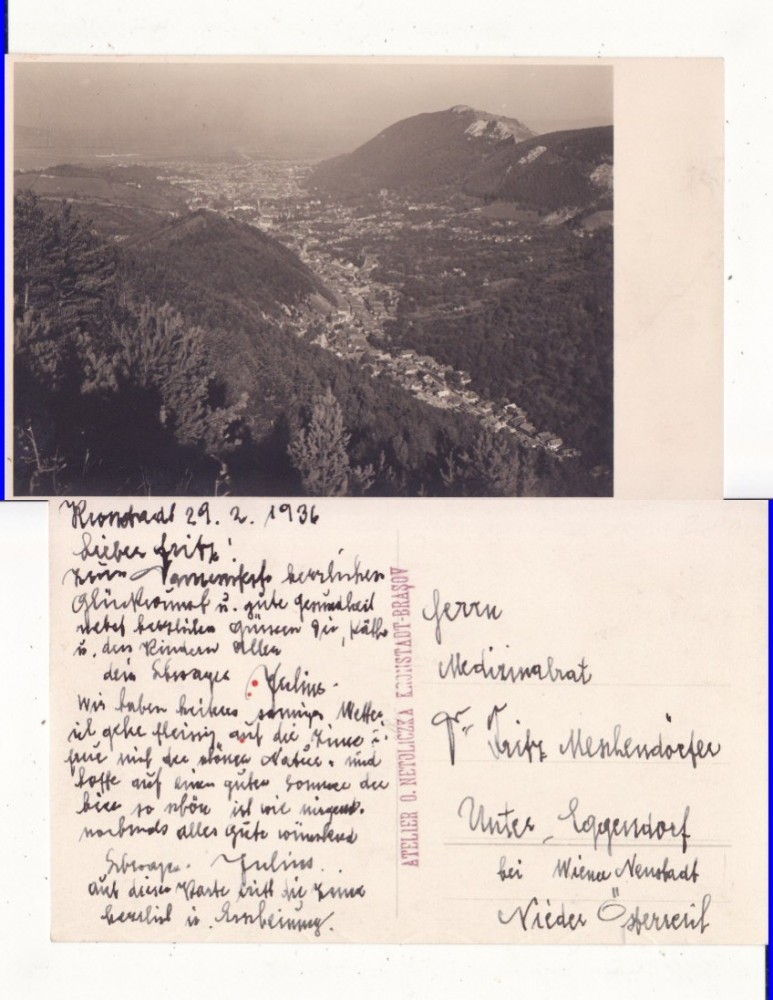 Kronstadt 29. 2. 1936
Lieber Fritz!
Zum Namensfest herzlichen
Glückwunsch u. gute Gesundheit
nebst herzlichen Grüssen Dir, Käthe
u. den Kindern allen
dein Schwager Julius.
Wir haben heiteres sonniges Wetter
ich gehe fleissig auf die Zinne u.
freue mich der schönen Natur. und
hoffe auf einen guten Sommer der
hier so schön ist wie nirgends.
nochmals alles Gute wünschend
Schwager. Julius.
auf dieser Karte tritt die Zinne
herrlich in Erscheinung.
ATELIER O. NETOLICZKA KRONSTADT-BRAŞOV
Herrn
Medizinalrat
Dr. Fritz Meschendörfer
Unter Eggendorf
bei Wiener Neustadt
Nieder Österreich